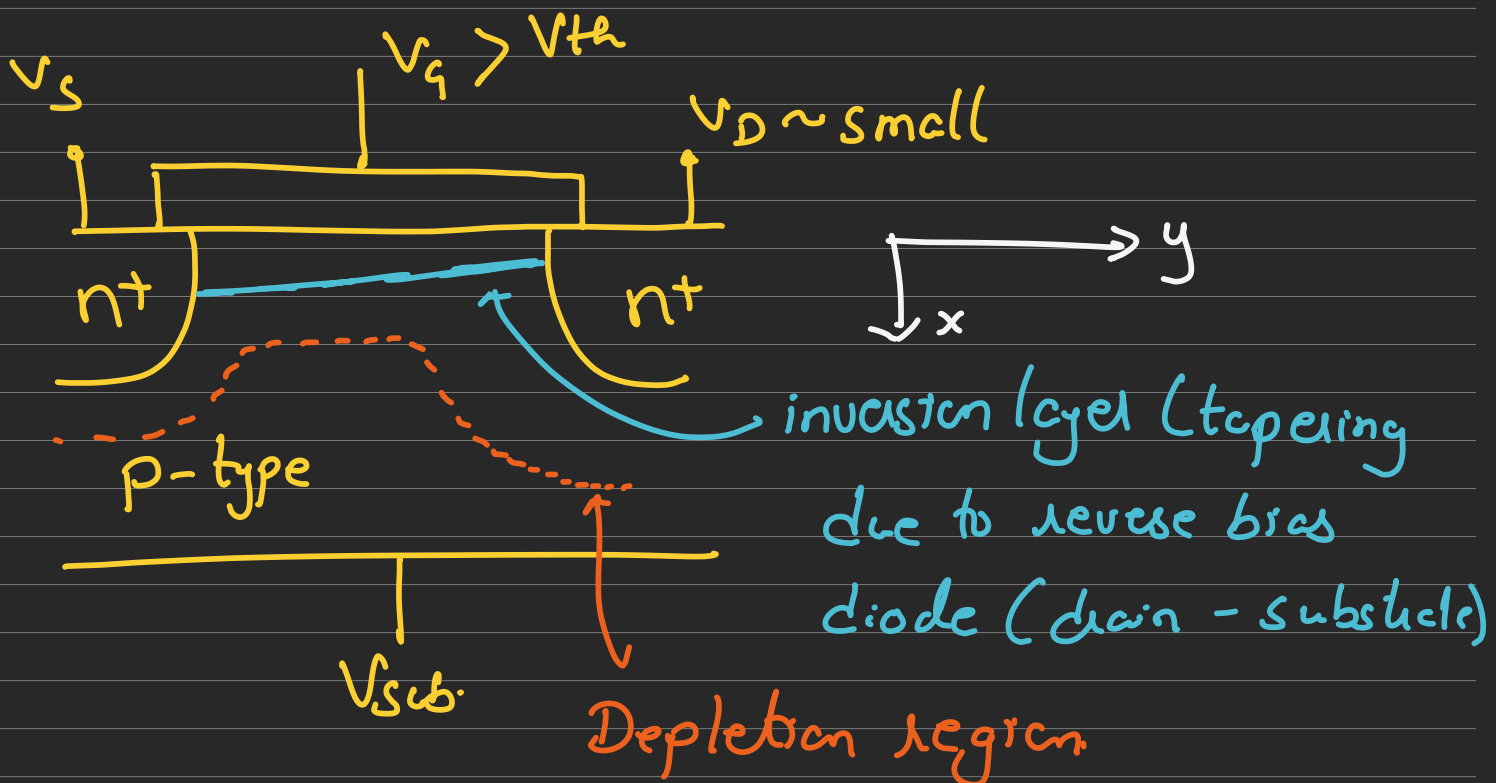 V_S
V_G > Vth
V_D ~ small
n+
n+
y
x
p-type
inversion layer (tapering
due to reverse bias
diode (drain - substrate)
Vsub.
Depletion region